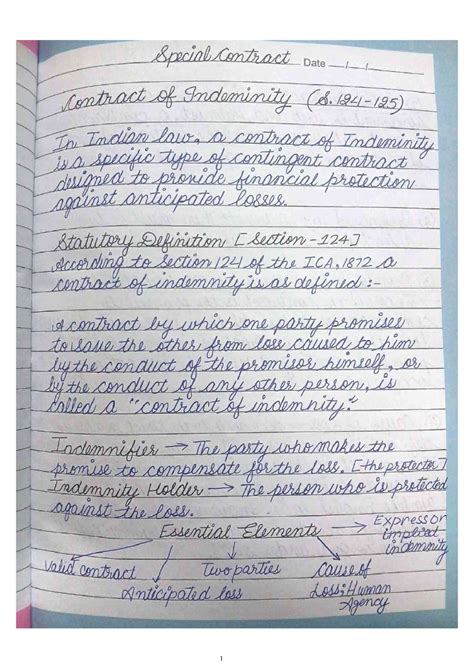 Special Contract Date __/__/__
Contract of Indeminity (S.124-125)
In Indian law, a contract of Indeminity
is a specific type of contingent contract
designed to provide financial protection
against anticipated losses.
Statutory Definition [Section-124]
According to Section 124 of the ICA, 1872 a
contract of indemnity is as defined :-
A contract by which one party promises
to save the other from loss caused to him
by the conduct of the promisor himself, or
by the conduct of any other person, is
called a "contract of indemnity."
Indemnifier → The party who makes the
promise to compensate for the loss. [the protector]
Indemnity Holder → The person who is protected
against the loss.
Essential Elements → Express or
implied
indemnity
Valid contract Two parties Cause of
Anticipated loss Loss: Human
Agency
1